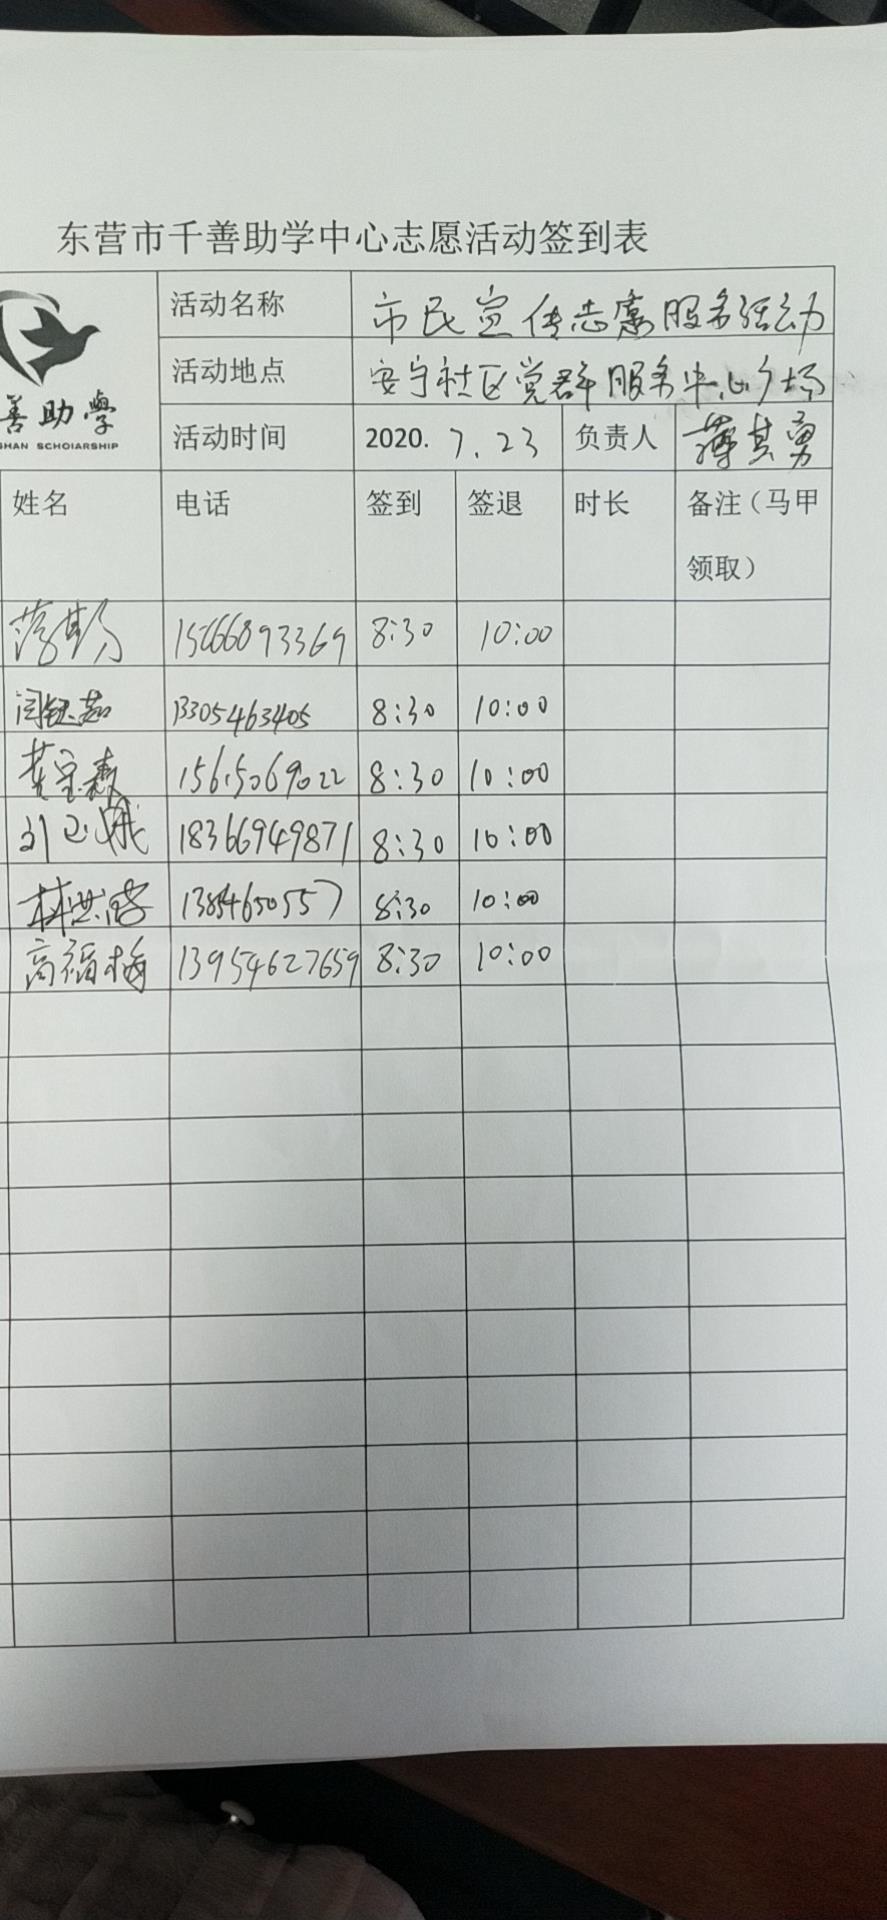 东营市千善助学中心志愿活动签到表
活动名称 市民宣传志愿服务活动
善助學 活动地点 安宁社区党群服务中心广场
SHAN SCHOIARSHIP 活动时间 2020. 7.23 负责人 薄其勇
姓名 电话 签到 签退 时长 备注（马甲
领取）
15666893369 8:30 10:00
闫钰茹 13305463405 8:30 10:00
黄宝森 15615069022 8:30 10:00
刘玉娥 18366949871 8:30 10:00
林洪 13854650557 8:30 10:00
高福梅 13954627659 8:30 10:00